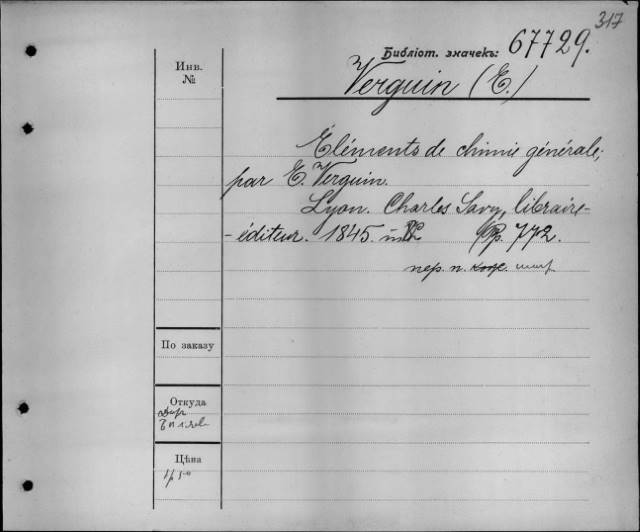 317
Библіот. значекъ: 67729.
Инв.
№
Verguin (E.)
Éléments de chimie générale;
par E. Verguin.
Lyon. Charles Savy, libraire-
-éditeur. 1845. Pp. 772.
пер. п.
По заказу
Откуда
Цѣна